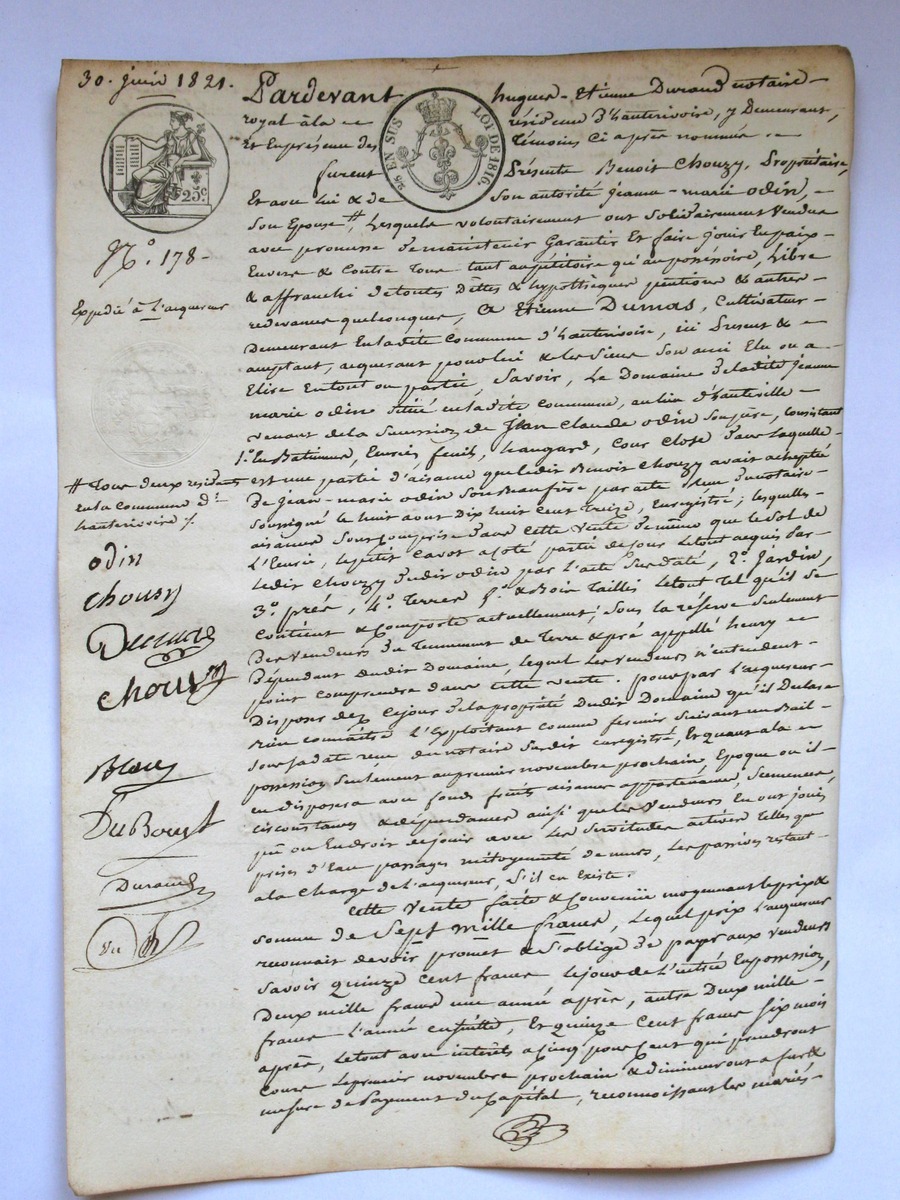 30. juin 1821.
Pardevant hugues-Etienne Durand notaire
royal à la résidence d'hauterivoire, y Demeurant,
Et En présence des témoins Ci après nommés
EN SUS LOI DE 1816.
25c
furent Présents Benoit Chouzy, Propriétaire,
Et avec lui & de Son autorité jeanne-marie odin,
Son Epouse #, Lesquels volontairement ont Solidairement Vendu
avec promesse de maintenir Garantir Et faire jouir En paix
Envers & Contre Tous tant au pétitoire qu'au possessoire, Libre
& affranchi de toutes Dettes & hypothèques pensions & autres
redevances quelconques, A Etienne Dumas, Cultivateur
Demeurant En ladite Commune d'hauterivoire, ici Présent &
acceptant, acquerant pour lui & les Siens Son ami Elu ou a
Elire En tout ou partie, Savoir, Le Domaine de ladite jeanne
marie odin Situé en ladite commune, au lieu d'hauteville
venant de la Succession de jean Claude odin Son père, Consistant
1.° En Batiments, Ecuries, fenil, hangard, Cour Close dans Laquelle
est une partie d'aisance que ledit Benoit Chouzy avait accepté
De jean-marie odin Son Beaufrère par acte reçu du notaire
Soussigné le huit aout Dix huit Cent treize, Enregistré; lesquelles
aisances Sont Comprises dans Cette Vente de même que le Sol de
L'Ecurie, le petit Cavot a côté partie de jour Le tout acquis Par
Ledit Chouzy dudit odin par l'acte Susdaté, 2.° Jardin,
3.° prés, 4.° Terres 5.° & Bois Taillis Le tout Tel qu'il Se
Contient & Comporte actuellement; Sous la réserve Seulement
Des Vendeurs du Tennement de Terre & pré appellé henry
Dépendant dudit Domaine, lequel Les Vendeurs n'entendent
point Comprendre dans Cette Vente. pour par L'acquereur
Disposer dez Cejour de la propriété Dudit Domaine qu'il Déclare
bien connaitre L'Exploitant comme fermier Suivant un Bail
Sous Sa date reçu du notaire Susdit enregistré, Et quant a la
possession Seulement au premier novembre prochain, Epoque ou il
en disposera avec fonds fruits aisances appartenances, Semences,
circonstances & dépendances ainsi que les Vendeurs En ont joui
pu ou En droit de jouir avec Les Servitudes actives Telles que
prises d'Eau passages mitoyenneté de murs, Les passives restant
a la Charge de L'acquereur, S'il en Existe.
Cette Vente faite & Convenue moyennant le prix &
Somme de Sept mille francs, Lequel prix L'acquereur
reconnait devoir promet & S'oblige de payer aux Vendeurs
Savoir quinze Cent francs Le jour de L'entrée En possession,
Deux mille francs une année après, autres Deux mille
francs L'année ensuitte, Et quinze Cent francs Six mois
après, Le tout avec intérêts a Cinq pour Cent qui prendront
Cours Le premier novembre prochain & diminueront a fur &
mesure de Payement du Capital, reconnoissant les mariés
N.° 178
Expédié à L'acquereur
# Tous deux residants
en la commune d.t
hauterivoire /.
odin
chouzy
chouzy
Blanc
DuBoust
Durand
Vu